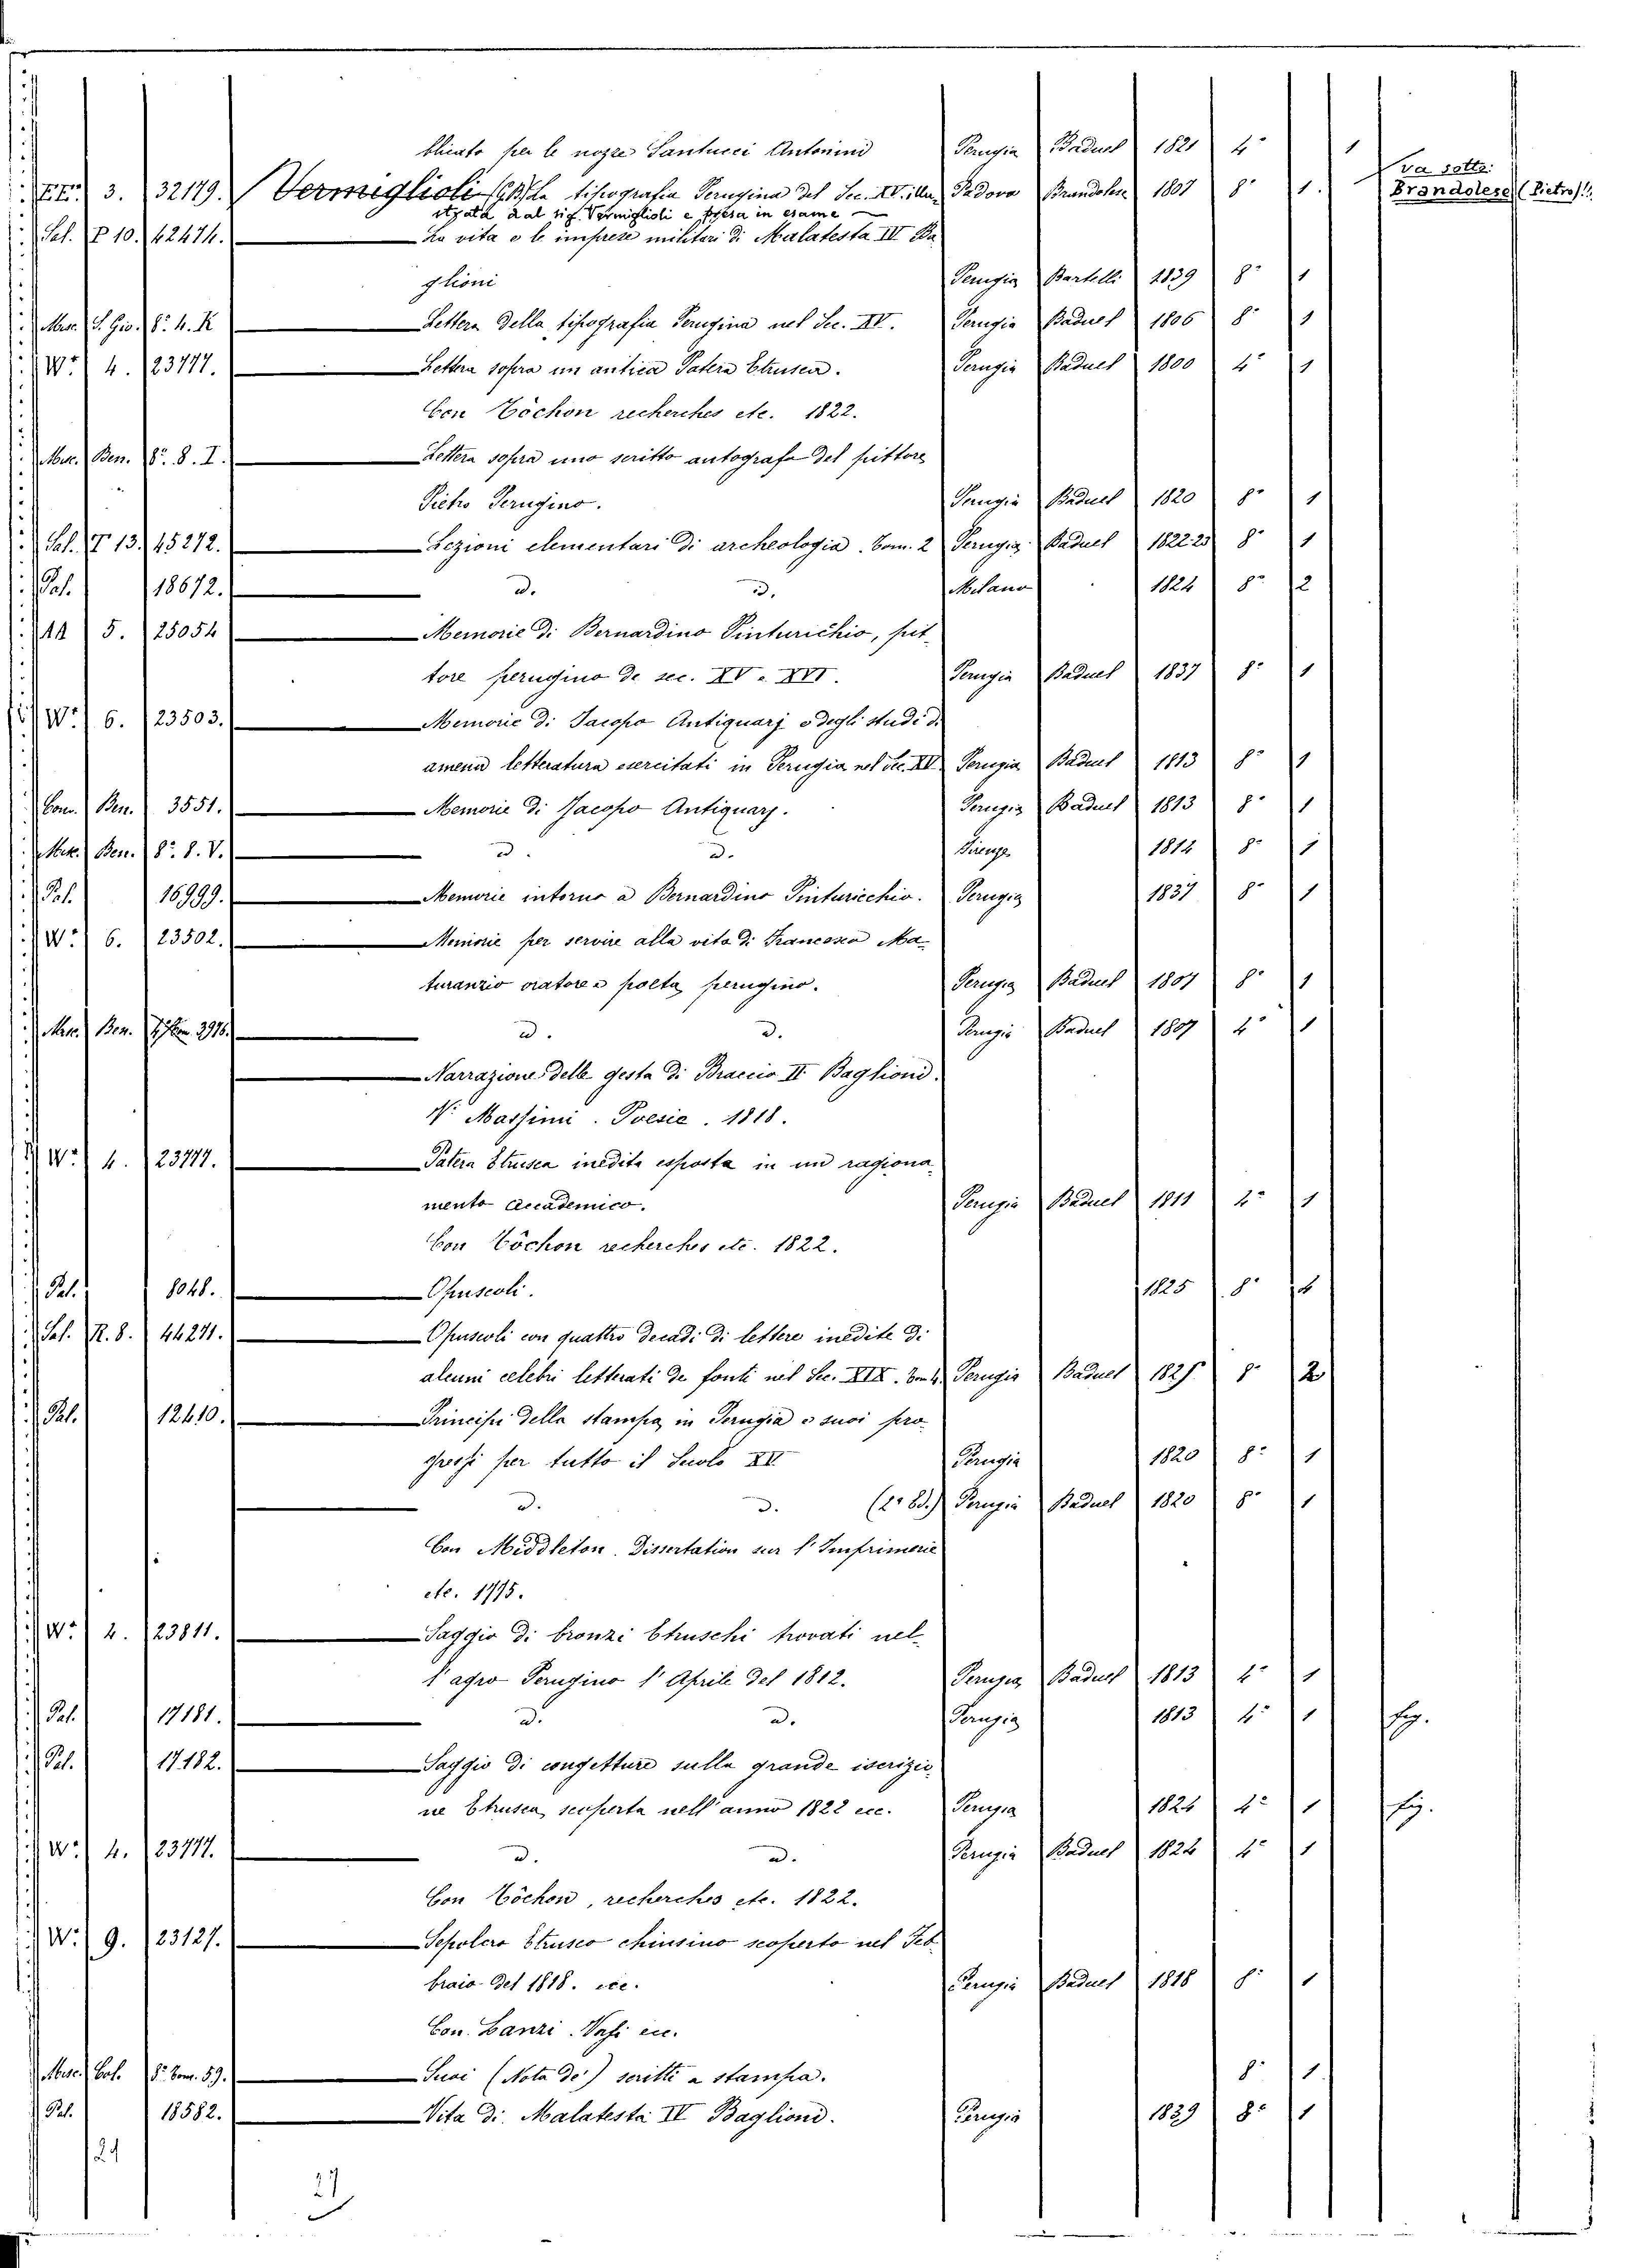 blicato per le nozze Santucci Antonini Perugia Baduel 1821 4° 1
3. 32179. Vermiglioli La tipografia Perugina del Sec. XV. illu Padova Brandolese 1807 8° 1. va sotto:
strata dal sig. Vermiglioli e presa in esame Brandolese (Pietro)
Sal. P 10. 42474. La vita e le imprese militari di Malatesta IV Ba
glioni Perugia Bartelli 1839 8° 1
Misc. S. Gio. 8° 4. K Lettera della tipografia Perugina nel Sec. XV. Perugia Baduel 1806 8° 1
W° 4. 23777. Lettera sopra un antica Patera Etrusca. Perugia Baduel 1800 4° 1
Con Cöchon recherches etc. 1822.
Misc. Ben. 8° 8. I. Lettera sopra uno scritto autografo del pittore
Pietro Perugino. Perugia Baduel 1820 8° 1
Sal. T 13. 45272. Lezioni elementari di archeologia. Tom. 2 Perugia Baduel 1822-23 8° 1
Pal. 18672. d. d. Milano 1824 8° 2
AA 5. 25054 Memorie di Bernardino Pinturichio, pit
tore perugino de sec. XV e XVI. Perugia Baduel 1837 8° 1
W° 6. 23503. Memorie di Jacopo Antiquarj e degli studi di
amena letteratura esercitati in Perugia nel Sec. XV Perugia Baduel 1813 8° 1
Com. Ben. 3551. Memorie di Jacopo Antiquarj. Perugia Baduel 1813 8° 1
Misc. Ben. 8° 8. V. d. d. Firenze 1814 8° 1
Pal. 16999. Memorie intorno a Bernardino Pinturicchio. Perugia 1837 8° 1
W° 6. 23502. Memorie per servire alla vita di Francesco Ma
turanzio oratore e poeta perugino. Perugia Baduel 1807 8° 1
Misc. Ben. 3976. d. d. Perugia Baduel 1807 4° 1
Narrazione delle gesta di Braccio II Baglioni.
V. Massimi. Poesie. 1818.
W° 4. 23777. Patera Etrusca inedita esposta in un ragiona
mento Accademico. Perugia Baduel 1811 4° 1
Con Cöchon recherches etc. 1822.
Pal. 8048. Opuscoli. 1825 8° 4
Sal. R. 8. 44271. Opuscoli con quattro decadi di lettere inedite di
alcuni celebri letterati de fonti nel Sec. XIX. Tom 4. Perugia Baduel 1825 8° 2
Pal. 12410. Principi della stampa in Perugia e suoi pro
gressi per tutto il Secolo XV Perugia 1820 8° 1
d. d. (2° Ed.) Perugia Baduel 1820 8° 1
Con Middleton. Dissertation sur l'Imprimerie
etc. 1775.
W° 4. 23811. Saggio di bronzi Etruschi trovati nel
l'agro Perugino l'Aprile del 1812. Perugia Baduel 1813 4° 1
Pal. 17181. d. d. Perugia 1813 4° 1 fig.
Pal. 17182. Saggio di congetture sulla grande iscrizio
ne Etrusca scoperta nell'anno 1822 ecc. Perugia 1824 4° 1 fig.
W° 4. 23777. d. d. Perugia Baduel 1824 4° 1
Con Cöchon, recherches etc. 1822.
W. 9. 23127. Sepolcro Etrusco chiusino scoperto nel Feb
braio del 1818. ecc. Perugia Baduel 1818 8° 1
Con. Lanzi. Vasi ec.
Misc. Col. 8° Tom. 59. Suoi (Nota de') scritti a stampa. 8° 1
Pal. 18582. Vita di Malatesta IV Baglioni. Perugia 1839 8° 1
24
27